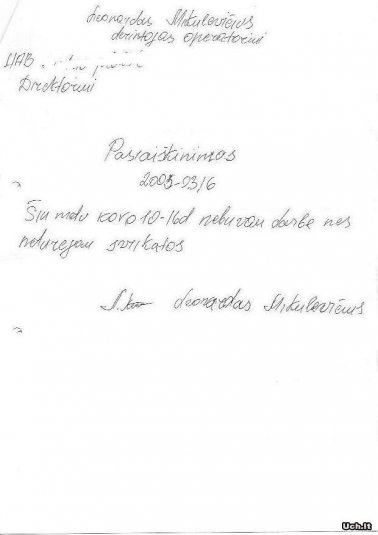 Leonardas Mikulevičius
derintojas operatorius
UAB
Direktoriui
Pasiaiškinimas
2005-03/6
Šiu metu kovo 10-16d nebuvau darbe nes
neturejau sveikatos
Leonardas Mikulevičius
Uch.lt